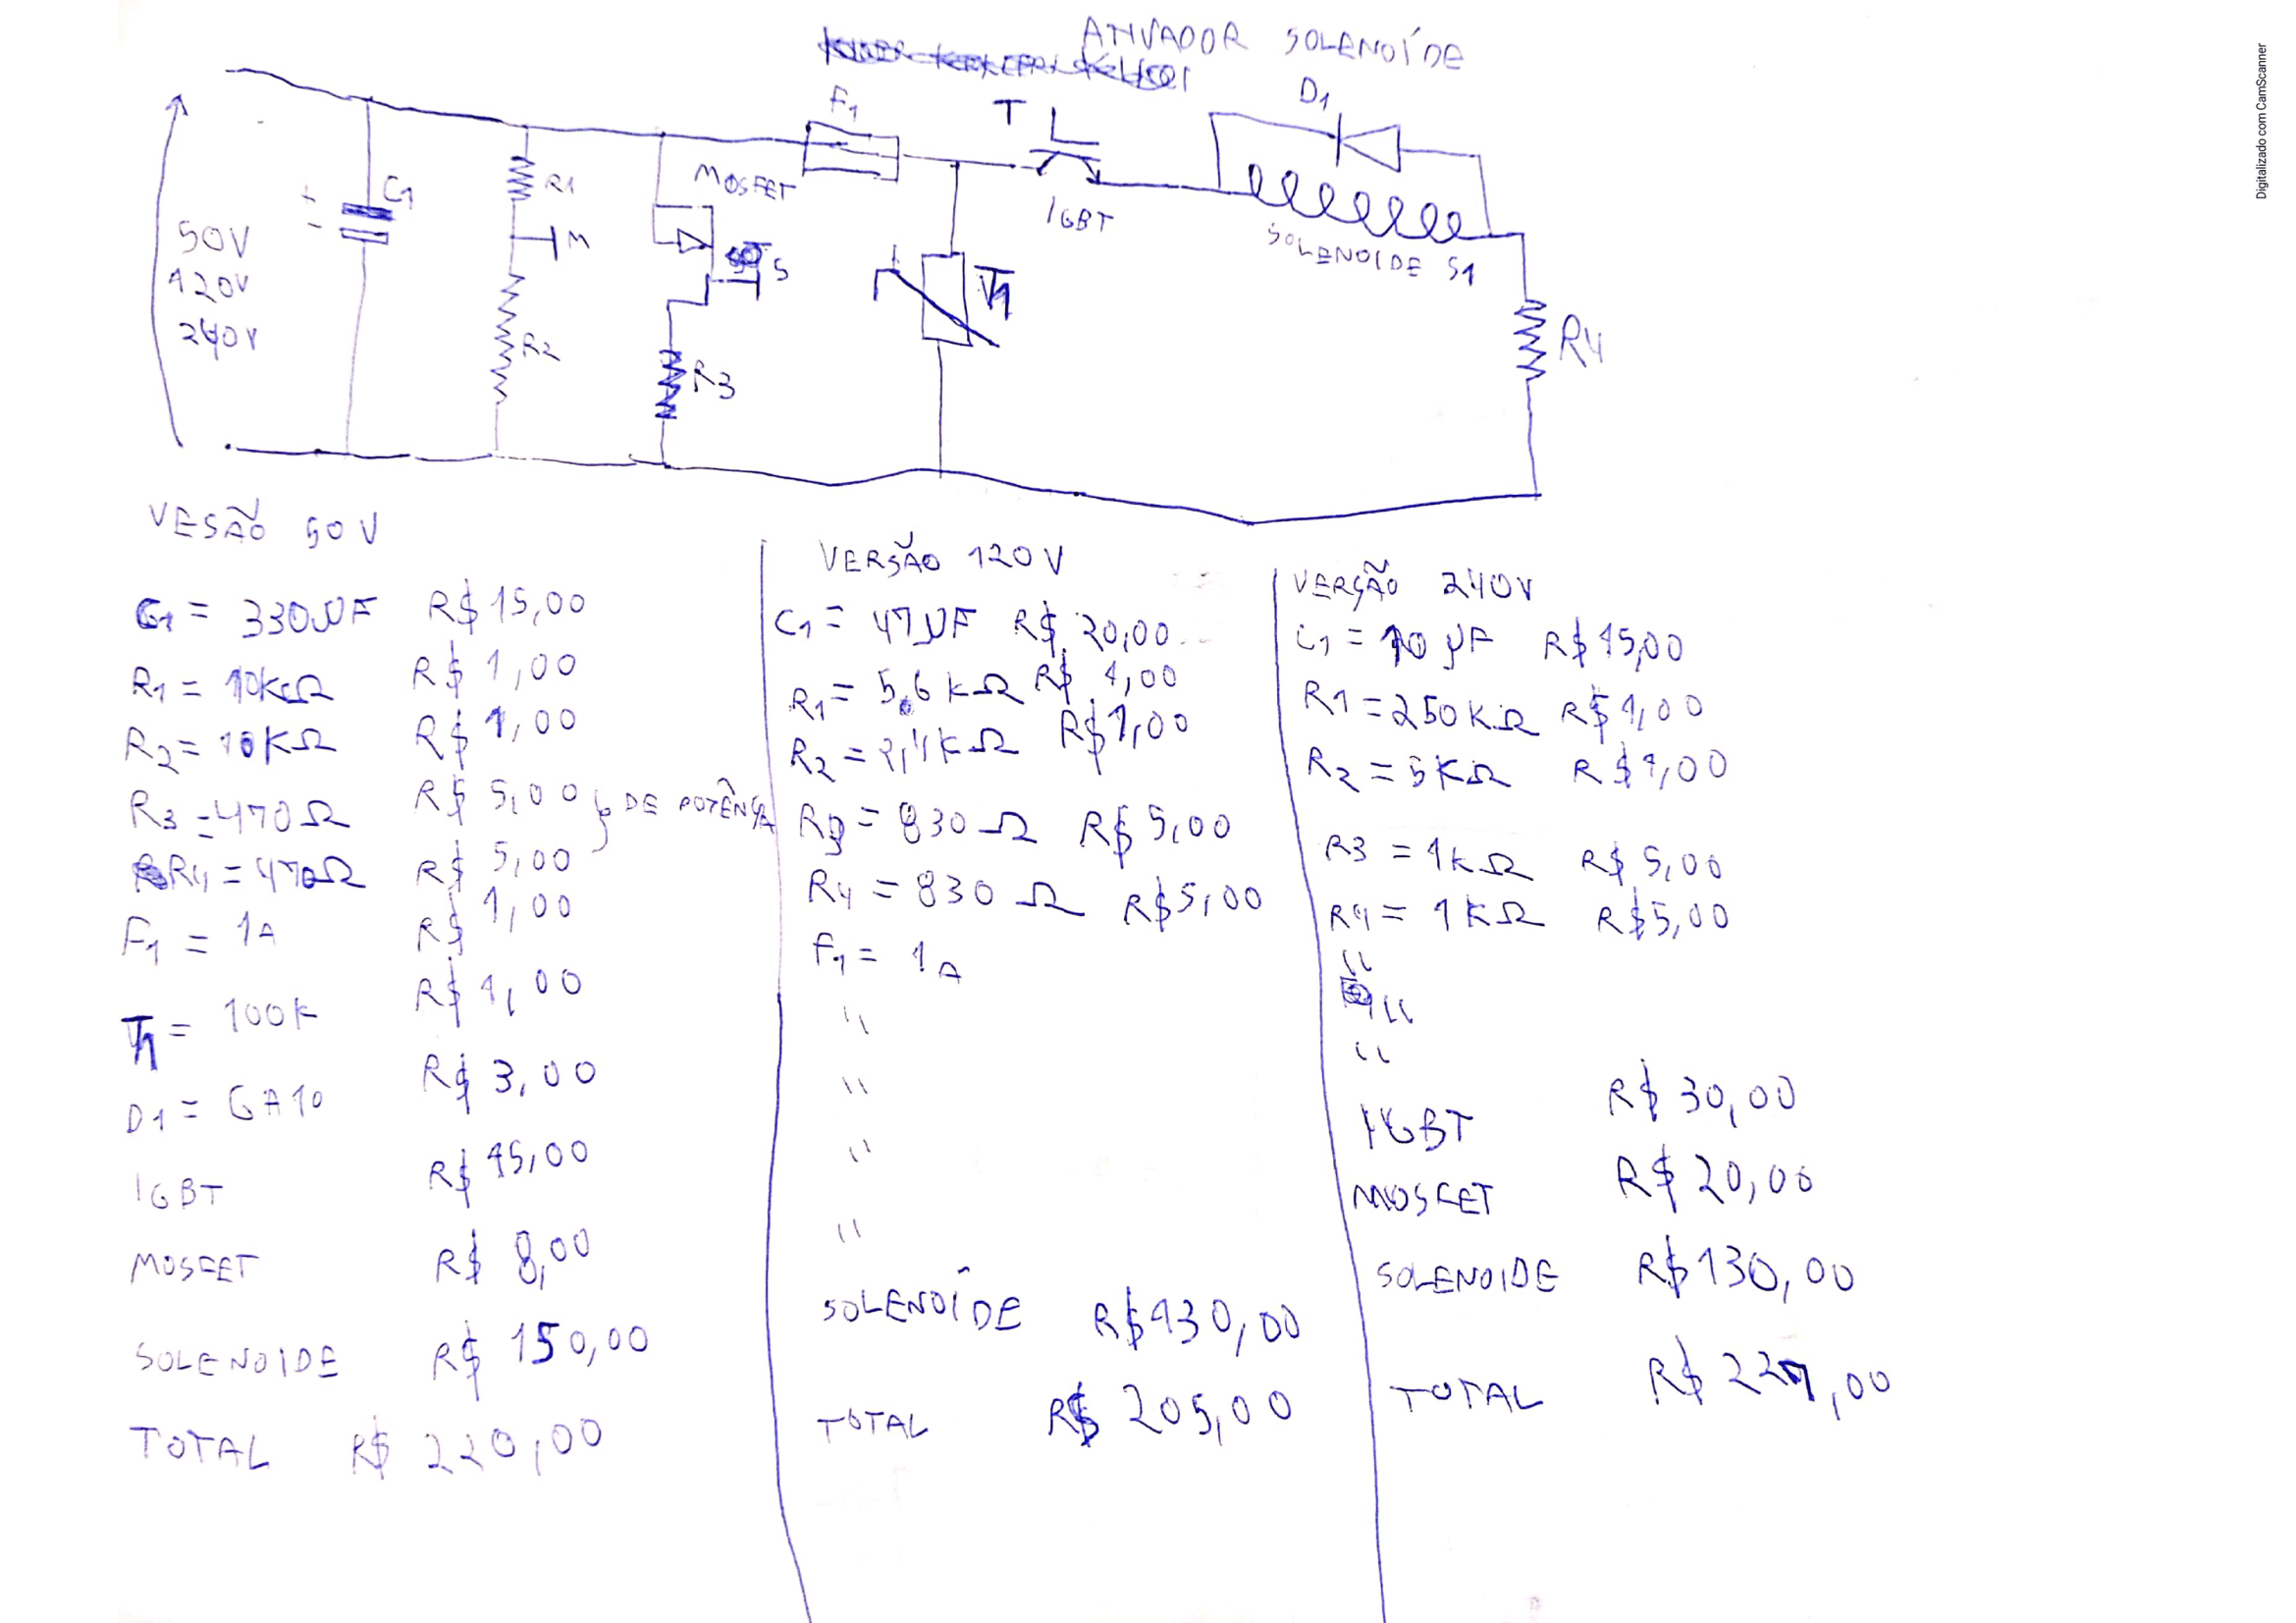 ATIVADOR SOLENOÍDE
F1
T
D1
C1
+
-
R1
MOSFET
M
IGBT
50V
120V
240V
S
SOLENOIDE S1
R2
R3
R4
VESÃO 50V
C1 = 330µF R$ 15,00
R1 = 10KΩ R$ 1,00
R2 = 10KΩ R$ 1,00
R3 = 470Ω R$ 5,00 } DE POTÊNÇIA
R4 = 470Ω R$ 5,00
F1 = 1A R$ 1,00
= 100K R$ 1,00
D1 = 6A10 R$ 3,00
IGBT R$ 15,00
MOSFET R$ 8,00
SOLENOIDE R$ 150,00
TOTAL R$ 220,00
VERSÃO 120V
C1 = 47µF R$ 20,00
R1 = 5,6KΩ R$ 1,00
R2 = KΩ R$ 1,00
R3 = 830Ω R$ 5,00
R4 = 830Ω R$ 5,00
F1 = 1A
"
"
"
"
SOLENOÍDE R$ 130,00
TOTAL R$ 205,00
VERSÃO 240V
C1 = 10µF R$ 15,00
R1 = 250KΩ R$ 1,00
R2 = 5KΩ R$ 1,00
R3 = 1KΩ R$ 5,00
R4 = 1KΩ R$ 5,00
"
"
"
IGBT R$ 30,00
MOSFET R$ 20,00
SOLENOIDE R$ 130,00
TOTAL R$ ,00
Digitalizado com CamScanner